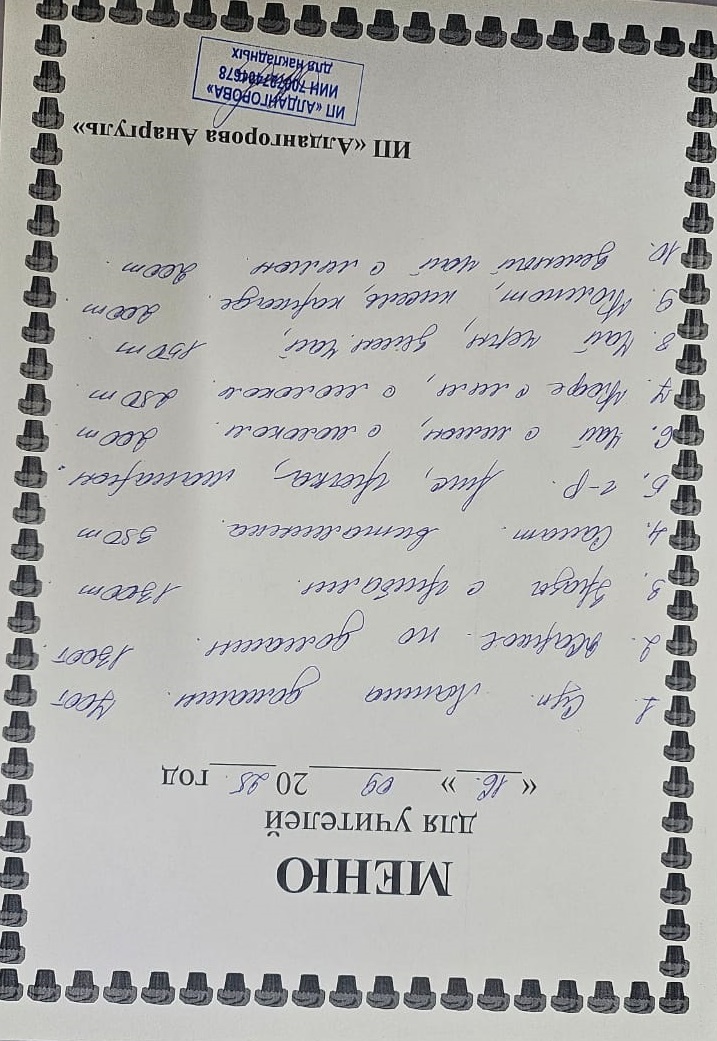 МЕНЮ
для учителей
« 16. » 09 2025. год
1. Суп. Лапша домашн. 700т
2. Жаркое по домашн. 1300т.
3. Зразы с 1300т
4. Салат. Витаминка. 350т
5. г-р. Рис, гречка, макарон.
6. Чай с лимон, с молоком. 200т
7. Кофе с молоком. 250т
8. Чай черн, зелен. чай, 150т.
9. Компот, кисель, каркаде. 200т.
10. Зеленый чай с лимон. 200т.
ИП «Алдангорова Анаргуль»
ИП «АЛДАНГОРОВА»
ИИН
для накладных